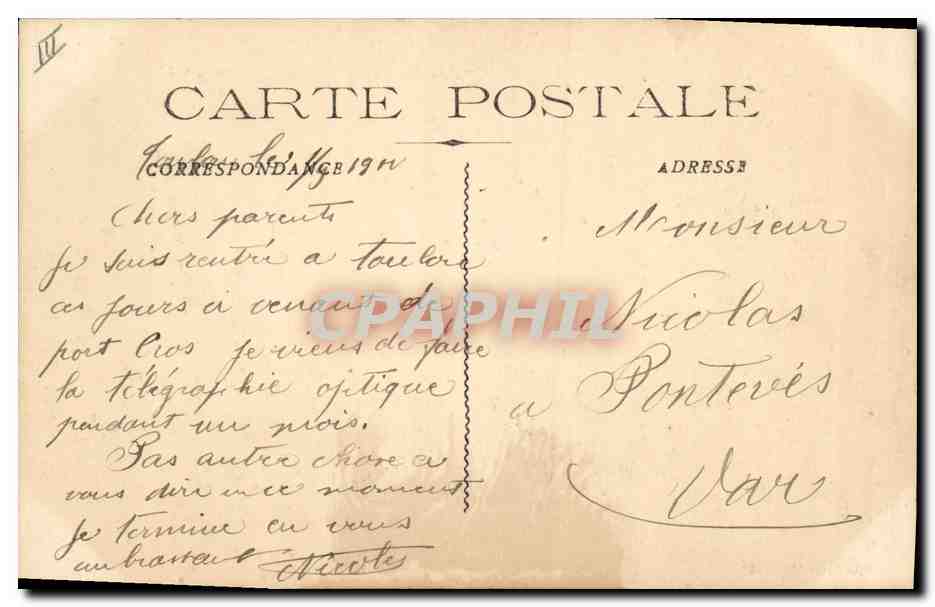 III
CARTE POSTALE
Toulon le 1/9 19
CORRESPONDANCE
ADRESSE
Chers parents
Je suis rentré a toulon
ces jours ci venant de
port Cros je viens de faire
la télégraphie optique
pendant un mois.
Pas autre chose a
vous dire en ce moment
Je termine en vous
embrassant
Monsieur
Nicolas
a Pontevès
Var
CPAPHIL